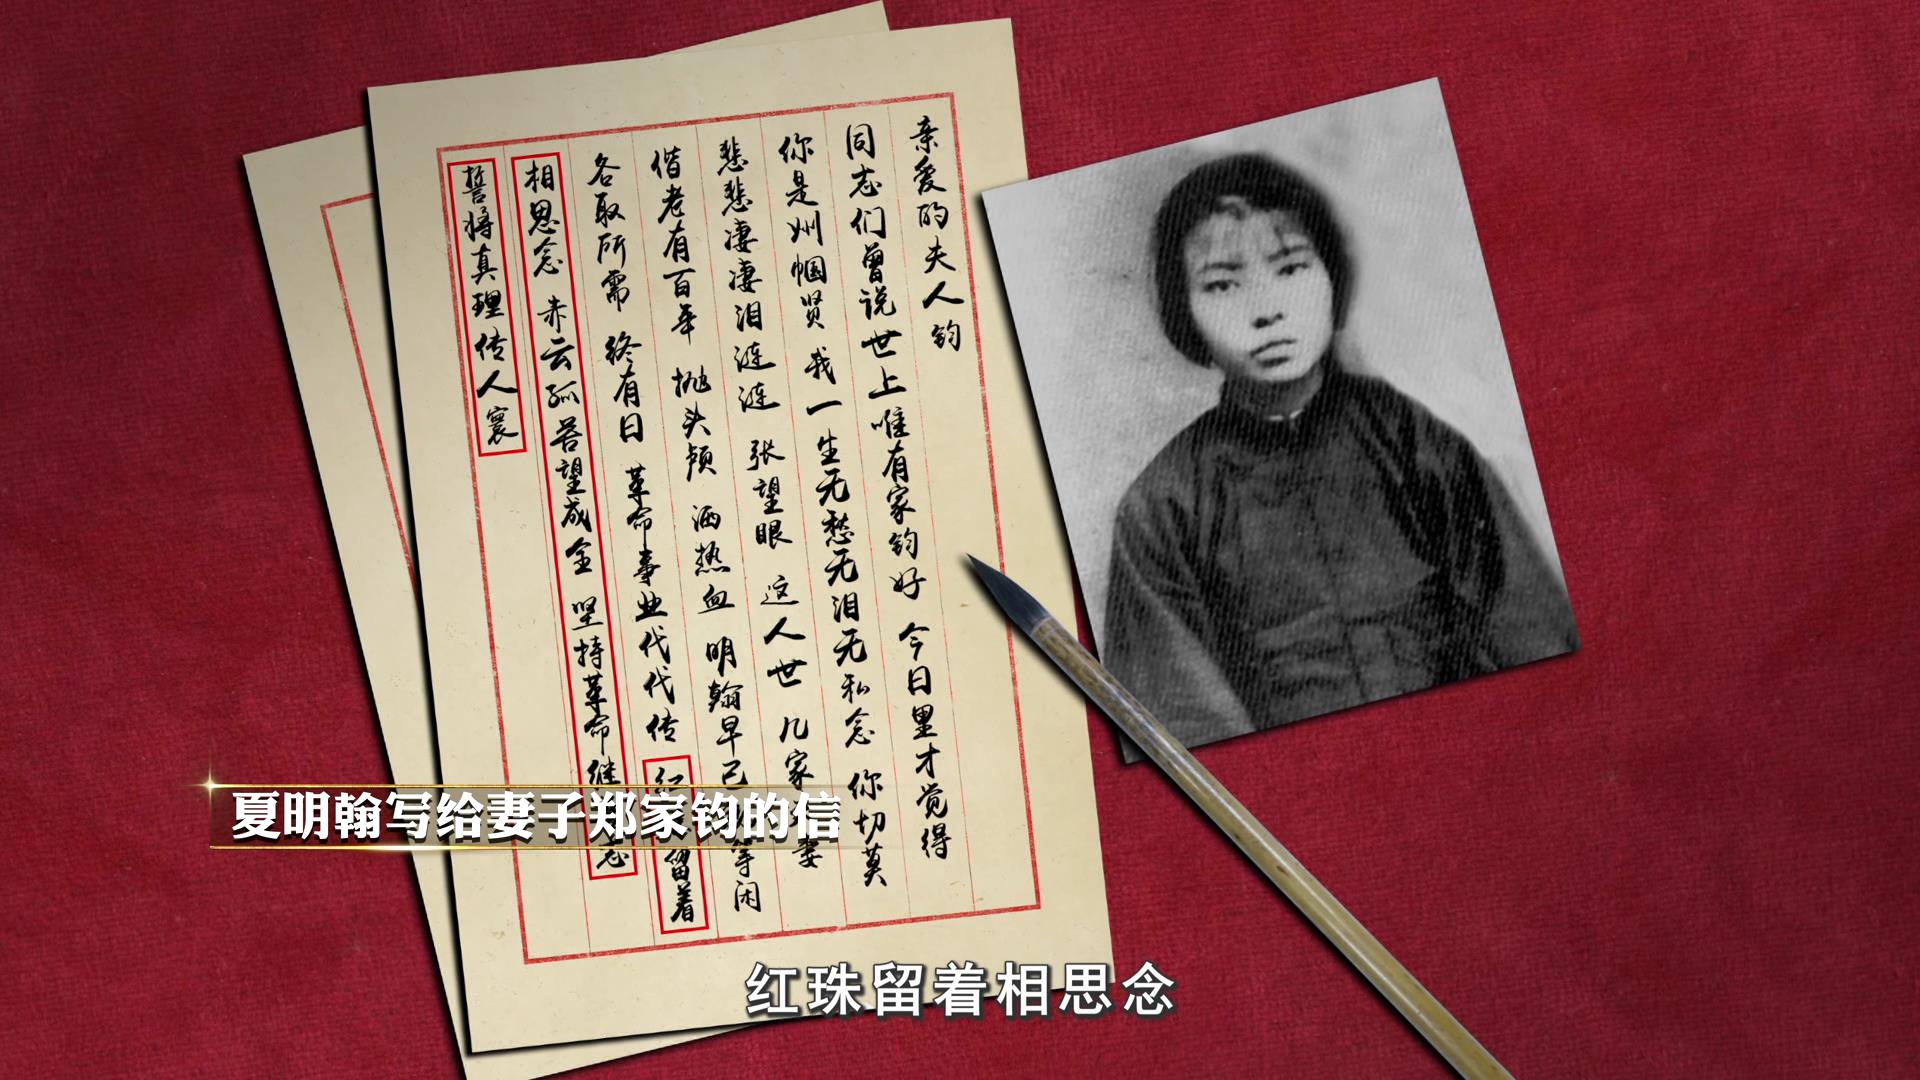 亲爱的夫人钧
同志们曾说世上唯有家钧好 今日里才觉得
你是州帼贤 我一生无愁无泪无私念 你切莫
悲悲凄凄泪涟涟 张望眼 这人世 几家妻
偕老有百年 抛头颅 洒热血 明翰早已等闲
各取所需 终有日 革命事业代代传 红留着
相思念 赤云孤苦望成全 坚持革命继志
誓将真理传人寰
夏明翰写给妻子郑家钧的信
红珠留着相思念